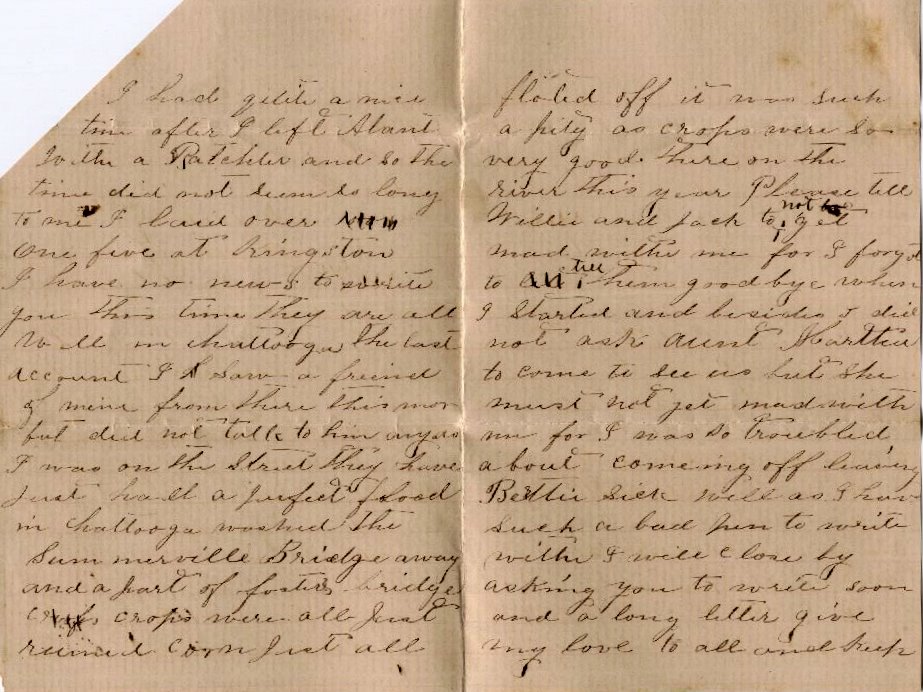 I had qetite a nice
time after I left Atant
With a Ratchler and so the
time did not seem so long
to me I laid over
one five at Kingston
I have no news to write
you this time They are all
Well in chattooga The last
account I saw a freind
of mine from there this mor
but did not talk to him any as
I was on the Street They have
Just had a perfect flood
in Chattooga washed the
Summerville Bridge away
and a part of fosters bridge
crops were all Just
ruined corn Just all
floted off it was such
a pity as crops were so
very good there on the
river this year Please tell
Willie and Jack to not get
mad withe me for I forgot
to tell them goodbye when
I started and besides I did
not ask Aunt Marthia
to come to see us but she
must not get mad with
me for I was so troubled
about comeing off leaving
Bettie sick well as I have
such a bad pen to write
withe I will close by
asking you to write soon
and a long letter give
my love to all and keep